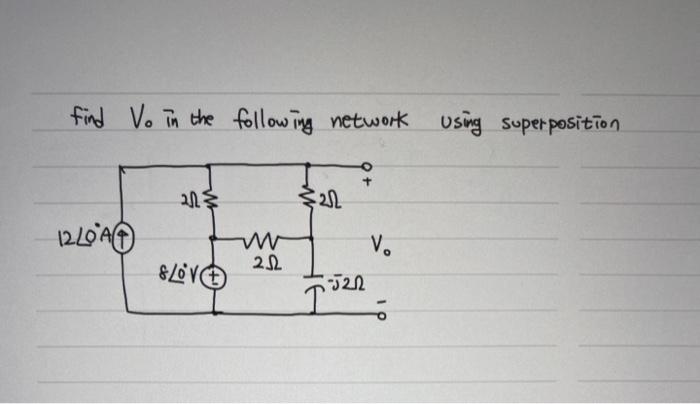 find Vo in the following network using superposition
+
2Ω 2Ω
12∠0°A
2Ω
Vo
8∠0°V + -j2Ω
-